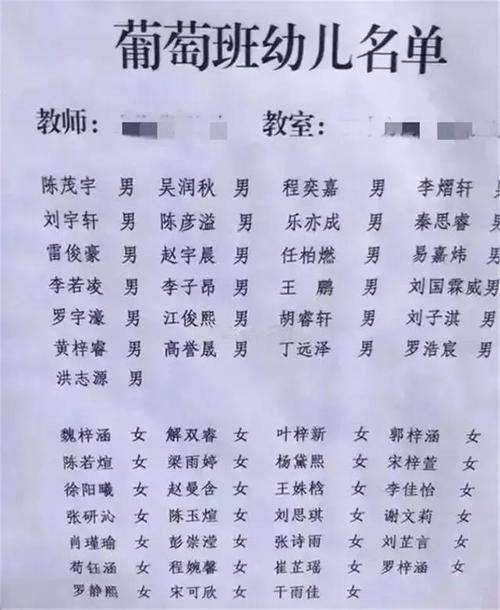 葡萄班幼儿名单
教师： 教室：
陈茂宇 男 吴润秋 男 程奕嘉 男 李熠轩 男
刘宇轩 男 陈彦溢 男 乐亦成 男 秦思睿 男
雷俊豪 男 赵宇晨 男 任柏燃 男 易嘉炜 男
李若凌 男 李子昂 男 王鹏 男 刘国霖威 男
罗宇濠 男 江俊熙 男 胡睿轩 男 刘子淇 男
黄梓睿 男 高誉晟 男 丁远泽 男 罗浩宸 男
洪志源 男
魏梓涵 女 解双睿 女 叶梓新 女 郭梓涵 女
陈若煊 女 梁雨婷 女 杨黛熙 女 宋梓萱 女
徐阳曦 女 赵曼含 女 王姝桧 女 李佳怡 女
张研沁 女 陈玉煊 女 刘思琪 女 谢文莉 女
肖瑾瑜 女 彭崇滢 女 张诗雨 女 刘芷言 女
荀钰涵 女 程婉馨 女 崔芷瑶 女 罗梓涵 女
罗静熙 女 宋可欣 女 干雨佳 女